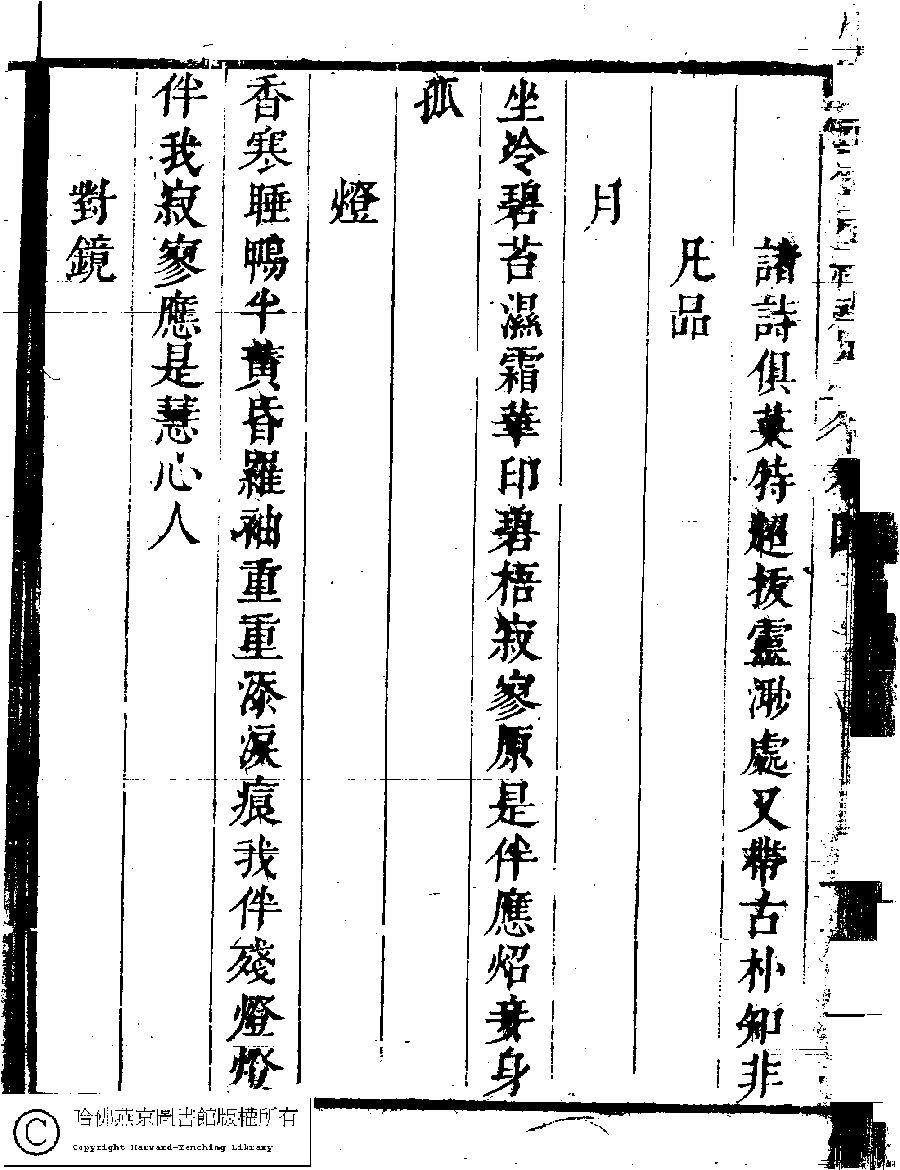 諸詩俱英特超拔靈渺處又帶古朴知非
凡品
月
坐冷碧苔濕霜華印碧梧寂寥原是伴應炤妾身
孤
燈
香寒睡鴨半黃昏羅袖重重添淚痕我伴殘燈燈
伴我寂寥應是慧心人
對鏡
哈佛燕京圖書館版權所有
Copyright Harvard-Yenching Library